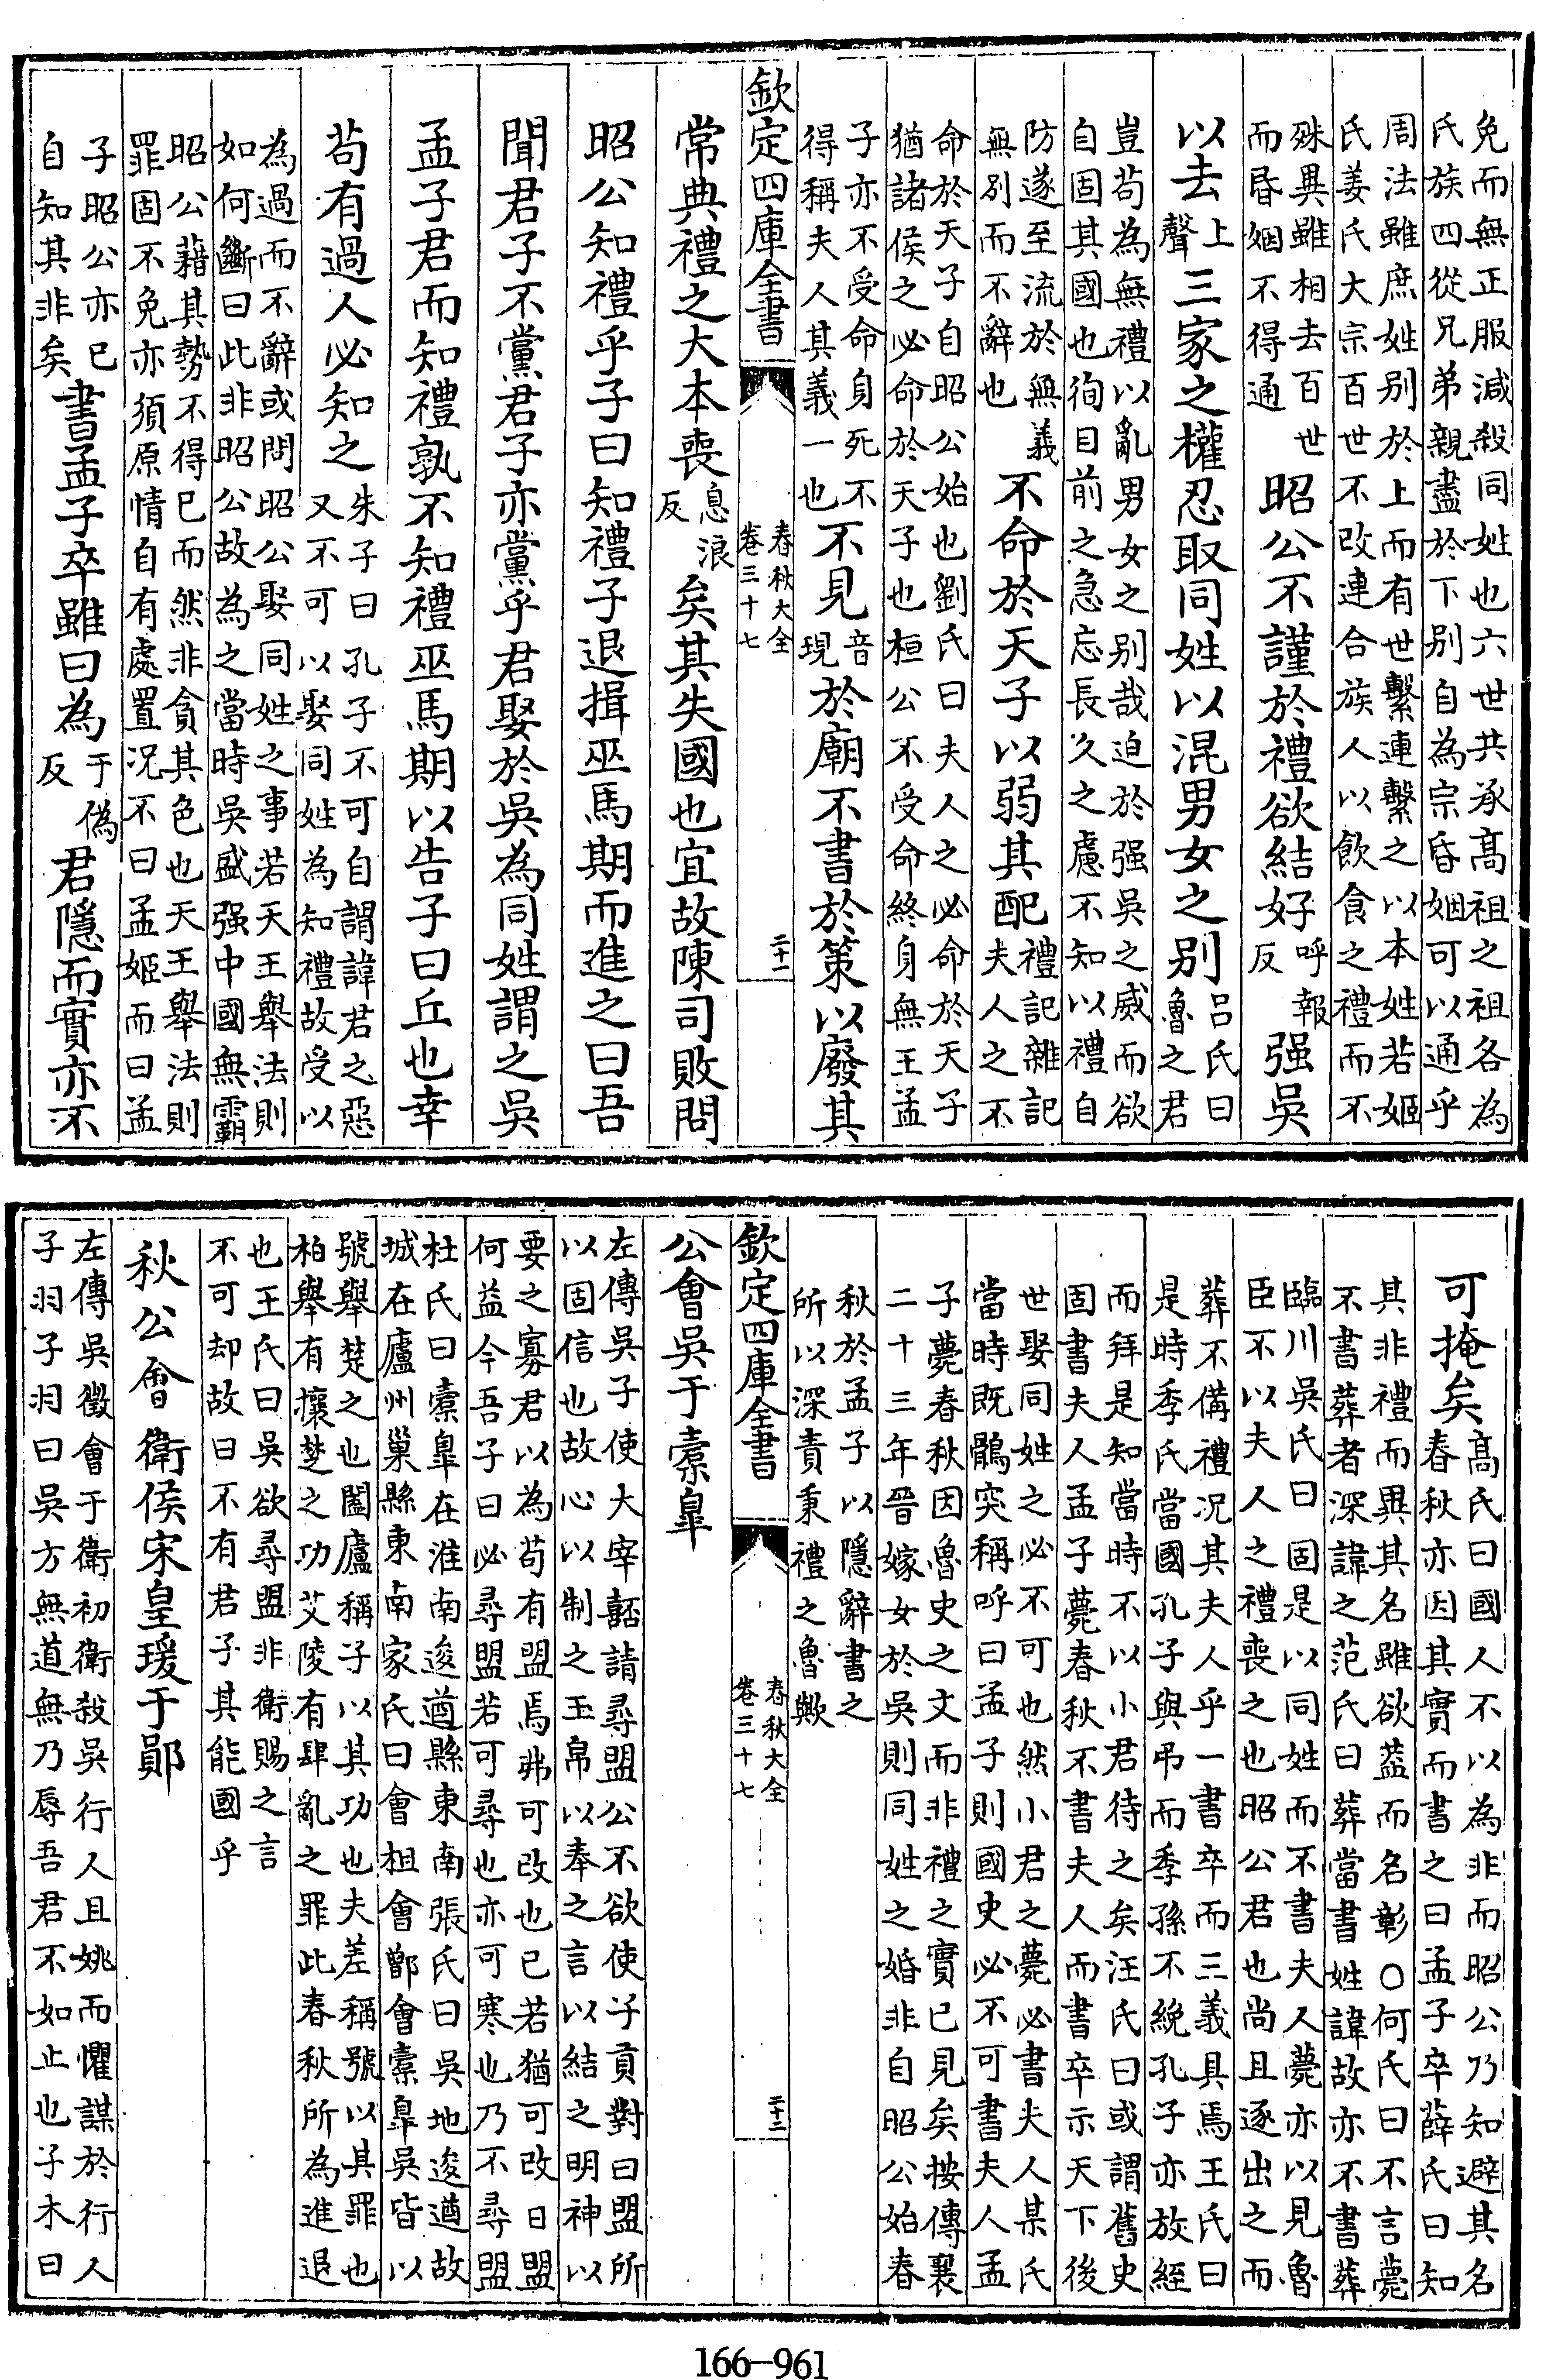 免而無正服減殺同姓也六世共承高祖之祖各為
氏族四從兄弟親盡於下别自為宗昏姻可以通乎
周法雖庶姓别於上而有世繫連繫之以本姓若姬
氏姜氏大宗百世不改連合族人以飲食之禮而不
殊異雖相去百世而昏姻不得通昭公不謹於禮欲結好呼報反强吳
以去上聲三家之權忍取同姓以混男女之别吕氏曰魯之君
豈苟為無禮以亂男女之别哉迫於强吳之威而欲
自固其國也徇目前之急忘長久之慮不知以禮自
防遂至流於無義無别而不辭也不命於天子以弱其配禮記雜記夫人之不
命於天子自昭公始也劉氏曰夫人之必命於天子
猶諸侯之必命於天子也桓公不受命終身無王孟
子亦不受命身死不得稱夫人其義一也不見音現於廟不書於策以廢其
欽定四庫全書 春秋大全 卷三十七 二十一
常典禮之大本喪息浪反矣其失國也宜故陳司敗問
昭公知禮乎子曰知禮子退揖巫馬期而進之曰吾
聞君子不黨君子亦黨乎君娶於吳為同姓謂之吳
孟子君而知禮孰不知禮巫馬期以告子曰丘也幸
苟有過人必知之朱子曰孔子不可自謂諱君之惡又不可以娶同姓為知禮故受以
為過而不辭或問昭公娶同姓之事若天王舉法則
如何斷曰此非昭公故為之當時吳盛强中國無霸
昭公藉其勢不得已而然非貪其色也天王舉法則
罪固不免亦須原情自有處置况不曰孟姬而曰孟
子昭公亦已自知其非矣書孟子卒雖曰為于偽反君隱而實亦不
可掩矣高氏曰國人不以為非而昭公乃知避其名春秋亦因其實而書之曰孟子卒薛氏曰知
其非禮而異其名雖欲葢而名彰○何氏曰不言薨
不書葬者深諱之范氏曰葬當書姓諱故亦不書葬
臨川吳氏曰固是以同姓而不書夫人薨亦以見魯
臣不以夫人之禮喪之也昭公君也尚且逐出之而
葬不備禮况其夫人乎一書卒而三義具焉王氏曰
是時季氏當國孔子與弔而季孫不絻孔子亦放絰
而拜是知當時不以小君待之矣汪氏曰或謂舊史
固書夫人孟子薨春秋不書夫人而書卒示天下後
世娶同姓之必不可也然小君之薨必書夫人某氏
當時既鶻突稱呼曰孟子則國史必不可書夫人孟
子薨春秋因魯史之文而非禮之實已見矣按傳襄
二十三年晉嫁女於吳則同姓之婚非自昭公始春
秋於孟子以隱辭書之
所以深責秉禮之魯歟
欽定四庫全書 春秋大全 卷三十七 二十二
公會吳于橐皐
左傳吳子使大宰嚭請尋盟公不欲使子貢對曰盟所
以固信也故心以制之玉帛以奉之言以結之明神以
要之寡君以為苟有盟焉弗可改也已若猶可改日盟
何益今吾子曰必尋盟若可尋也亦可寒也乃不尋盟
杜氏曰橐皐在淮南逡遒縣東南張氏曰吳地逡遒故
城在廬州巢縣東南家氏曰會柤會鄫會橐皐吳皆以
號舉楚之也闔廬稱子以其功也夫差稱號以其罪也
柏舉有攘楚之功艾陵有肆亂之罪此春秋所為進退
也王氏曰吳欲尋盟非衛賜之言
不可却故曰不有君子其能國乎
秋公會衛侯宋皇瑗于鄖
左傳吳徵會于衛初衛殺吳行人且姚而懼謀於行人
子羽子羽曰吳方無道無乃辱吾君不如止也子木曰
166-961